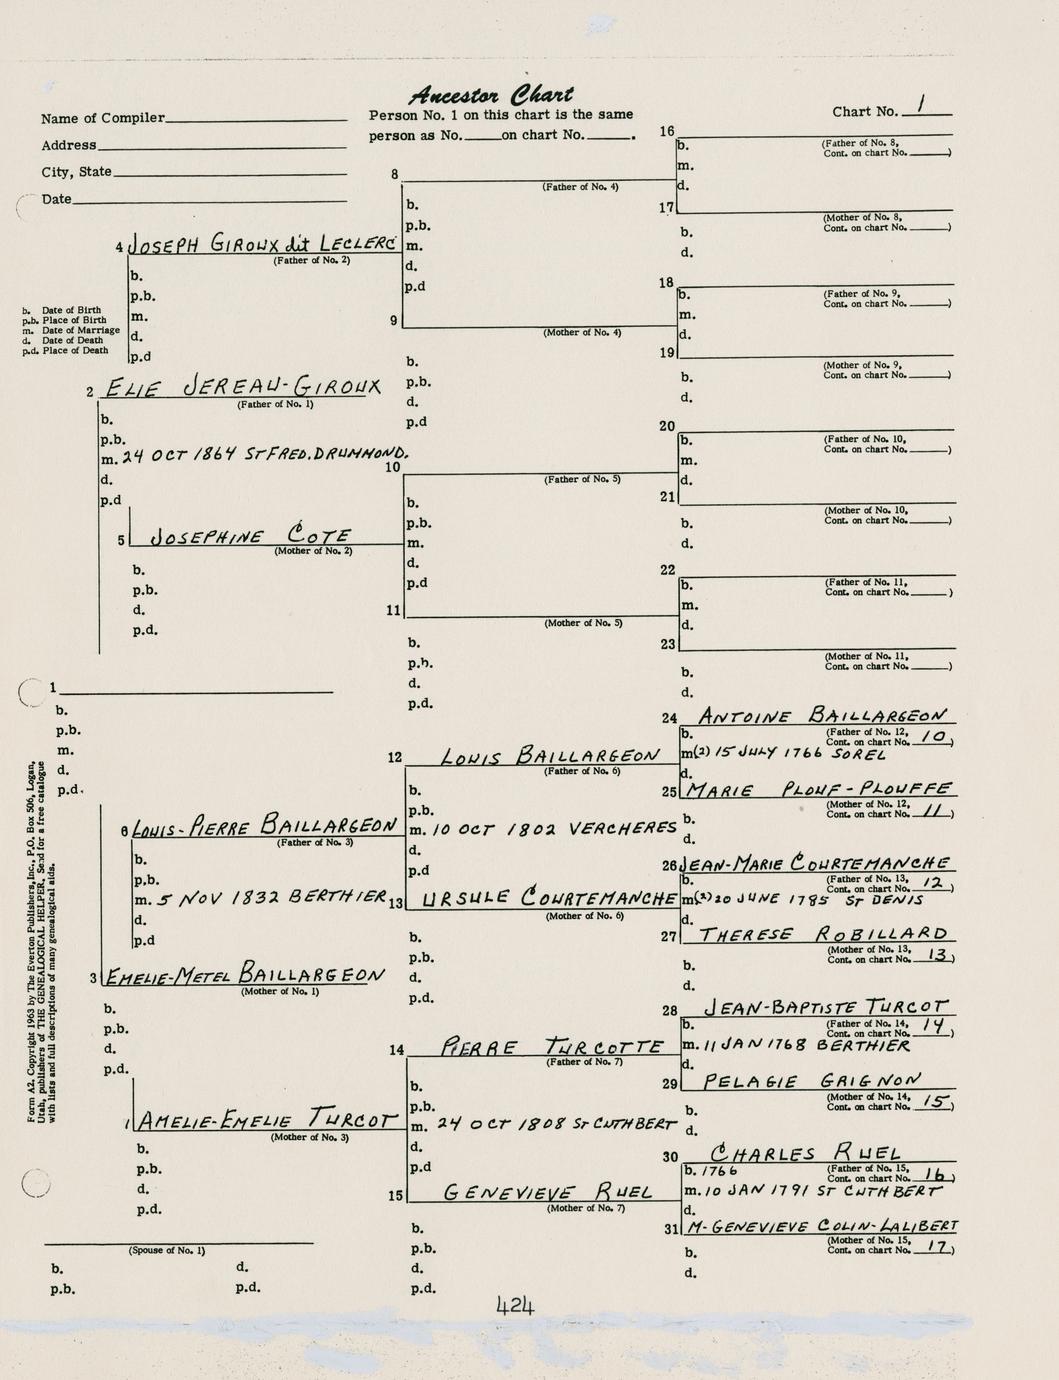 Ancestor Chart
Name of Compiler
Address
City, State
Date
Person No. 1 on this chart is the same
person as No. on chart No. .
Chart No. 1
16
b. (Father of No. 8,
Cont. on chart No. )
m.
d.
17
(Mother of No. 8,
Cont. on chart No. )
b.
d.
8
(Father of No. 4)
b.
p.b.
m.
d.
p.d
4 JOSEPH GIROUX dit LECLERC
(Father of No. 2)
b.
p.b.
m.
d.
p.d
b. Date of Birth
p.b. Place of Birth
m. Date of Marriage
d. Date of Death
p.d. Place of Death
18
b. (Father of No. 9,
Cont. on chart No. )
m.
d.
19
(Mother of No. 9,
Cont. on chart No. )
b.
d.
9
(Mother of No. 4)
b.
p.b.
d.
p.d
2 ELIE JEREAU-GIROUX
(Father of No. 1)
b.
p.b.
m. 24 OCT 1864 ST FRED. DRUMMOND.
d.
p.d
20
b. (Father of No. 10,
Cont. on chart No. )
m.
d.
21
(Mother of No. 10,
Cont. on chart No. )
b.
d.
10
(Father of No. 5)
b.
p.b.
m.
d.
p.d
5 JOSEPHINE COTE
(Mother of No. 2)
b.
p.b.
d.
p.d.
22
b. (Father of No. 11,
Cont. on chart No. )
m.
d.
23
(Mother of No. 11,
Cont. on chart No. )
b.
d.
11
(Mother of No. 5)
b.
p.b.
d.
p.d.
1
b.
p.b.
m.
d.
p.d.
24 ANTOINE BAILLARGEON
b. (Father of No. 12,
Cont. on chart No. 10)
m(2) 15 JULY 1766 SOREL
d.
25 MARIE PLOUF-PLOUFFE
(Mother of No. 12,
Cont. on chart No. 11)
b.
d.
12 LOUIS BAILLARGEON
(Father of No. 6)
b.
p.b.
m. 10 OCT 1802 VERCHERES
d.
p.d
6 LOUIS-PIERRE BAILLARGEON
(Father of No. 3)
b.
p.b.
m. 5 NOV 1832 BERTHIER
d.
p.d
26 JEAN-MARIE COURTEMANCHE
b. (Father of No. 13,
Cont. on chart No. 12)
m(2) 20 JUNE 1785 ST DENIS
d.
27 THERESE ROBILLARD
(Mother of No. 13,
Cont. on chart No. 13)
b.
d.
13 URSULE COURTEMANCHE
(Mother of No. 6)
b.
p.b.
d.
p.d.
3 EMELIE-METEL BAILLARGEON
(Mother of No. 1)
b.
p.b.
d.
p.d.
28 JEAN-BAPTISTE TURCOT
b. (Father of No. 14,
Cont. on chart No. 14)
m. 11 JAN 1768 BERTHIER
d.
29 PELAGIE GRIGNON
(Mother of No. 14,
Cont. on chart No. 15)
b.
d.
14 PIERRE TURCOTTE
(Father of No. 7)
b.
p.b.
m. 24 OCT 1808 ST CUTHBERT
d.
p.d
AMELIE-EMELIE TURCOT
(Mother of No. 3)
b.
p.b.
d.
p.d.
30 CHARLES RUEL
b. 1766 (Father of No. 15,
Cont. on chart No. 16)
m. 10 JAN 1791 ST CUTHBERT
d.
31 M-GENEVIEVE COLIN-LALIBERT
(Mother of No. 15,
Cont. on chart No. 17)
b.
d.
15 GENEVIEVE RUEL
(Mother of No. 7)
b.
p.b.
d.
p.d.
(Spouse of No. 1)
b. d.
p.b. p.d.
Form A2. Copyright 1963 by The Everton Publishers, Inc., P.O. Box 506, Logan,
Utah, publishers of THE GENEALOGICAL HELPER. Send for a free catalogue
with lists and full descriptions of many genealogical aids.
424